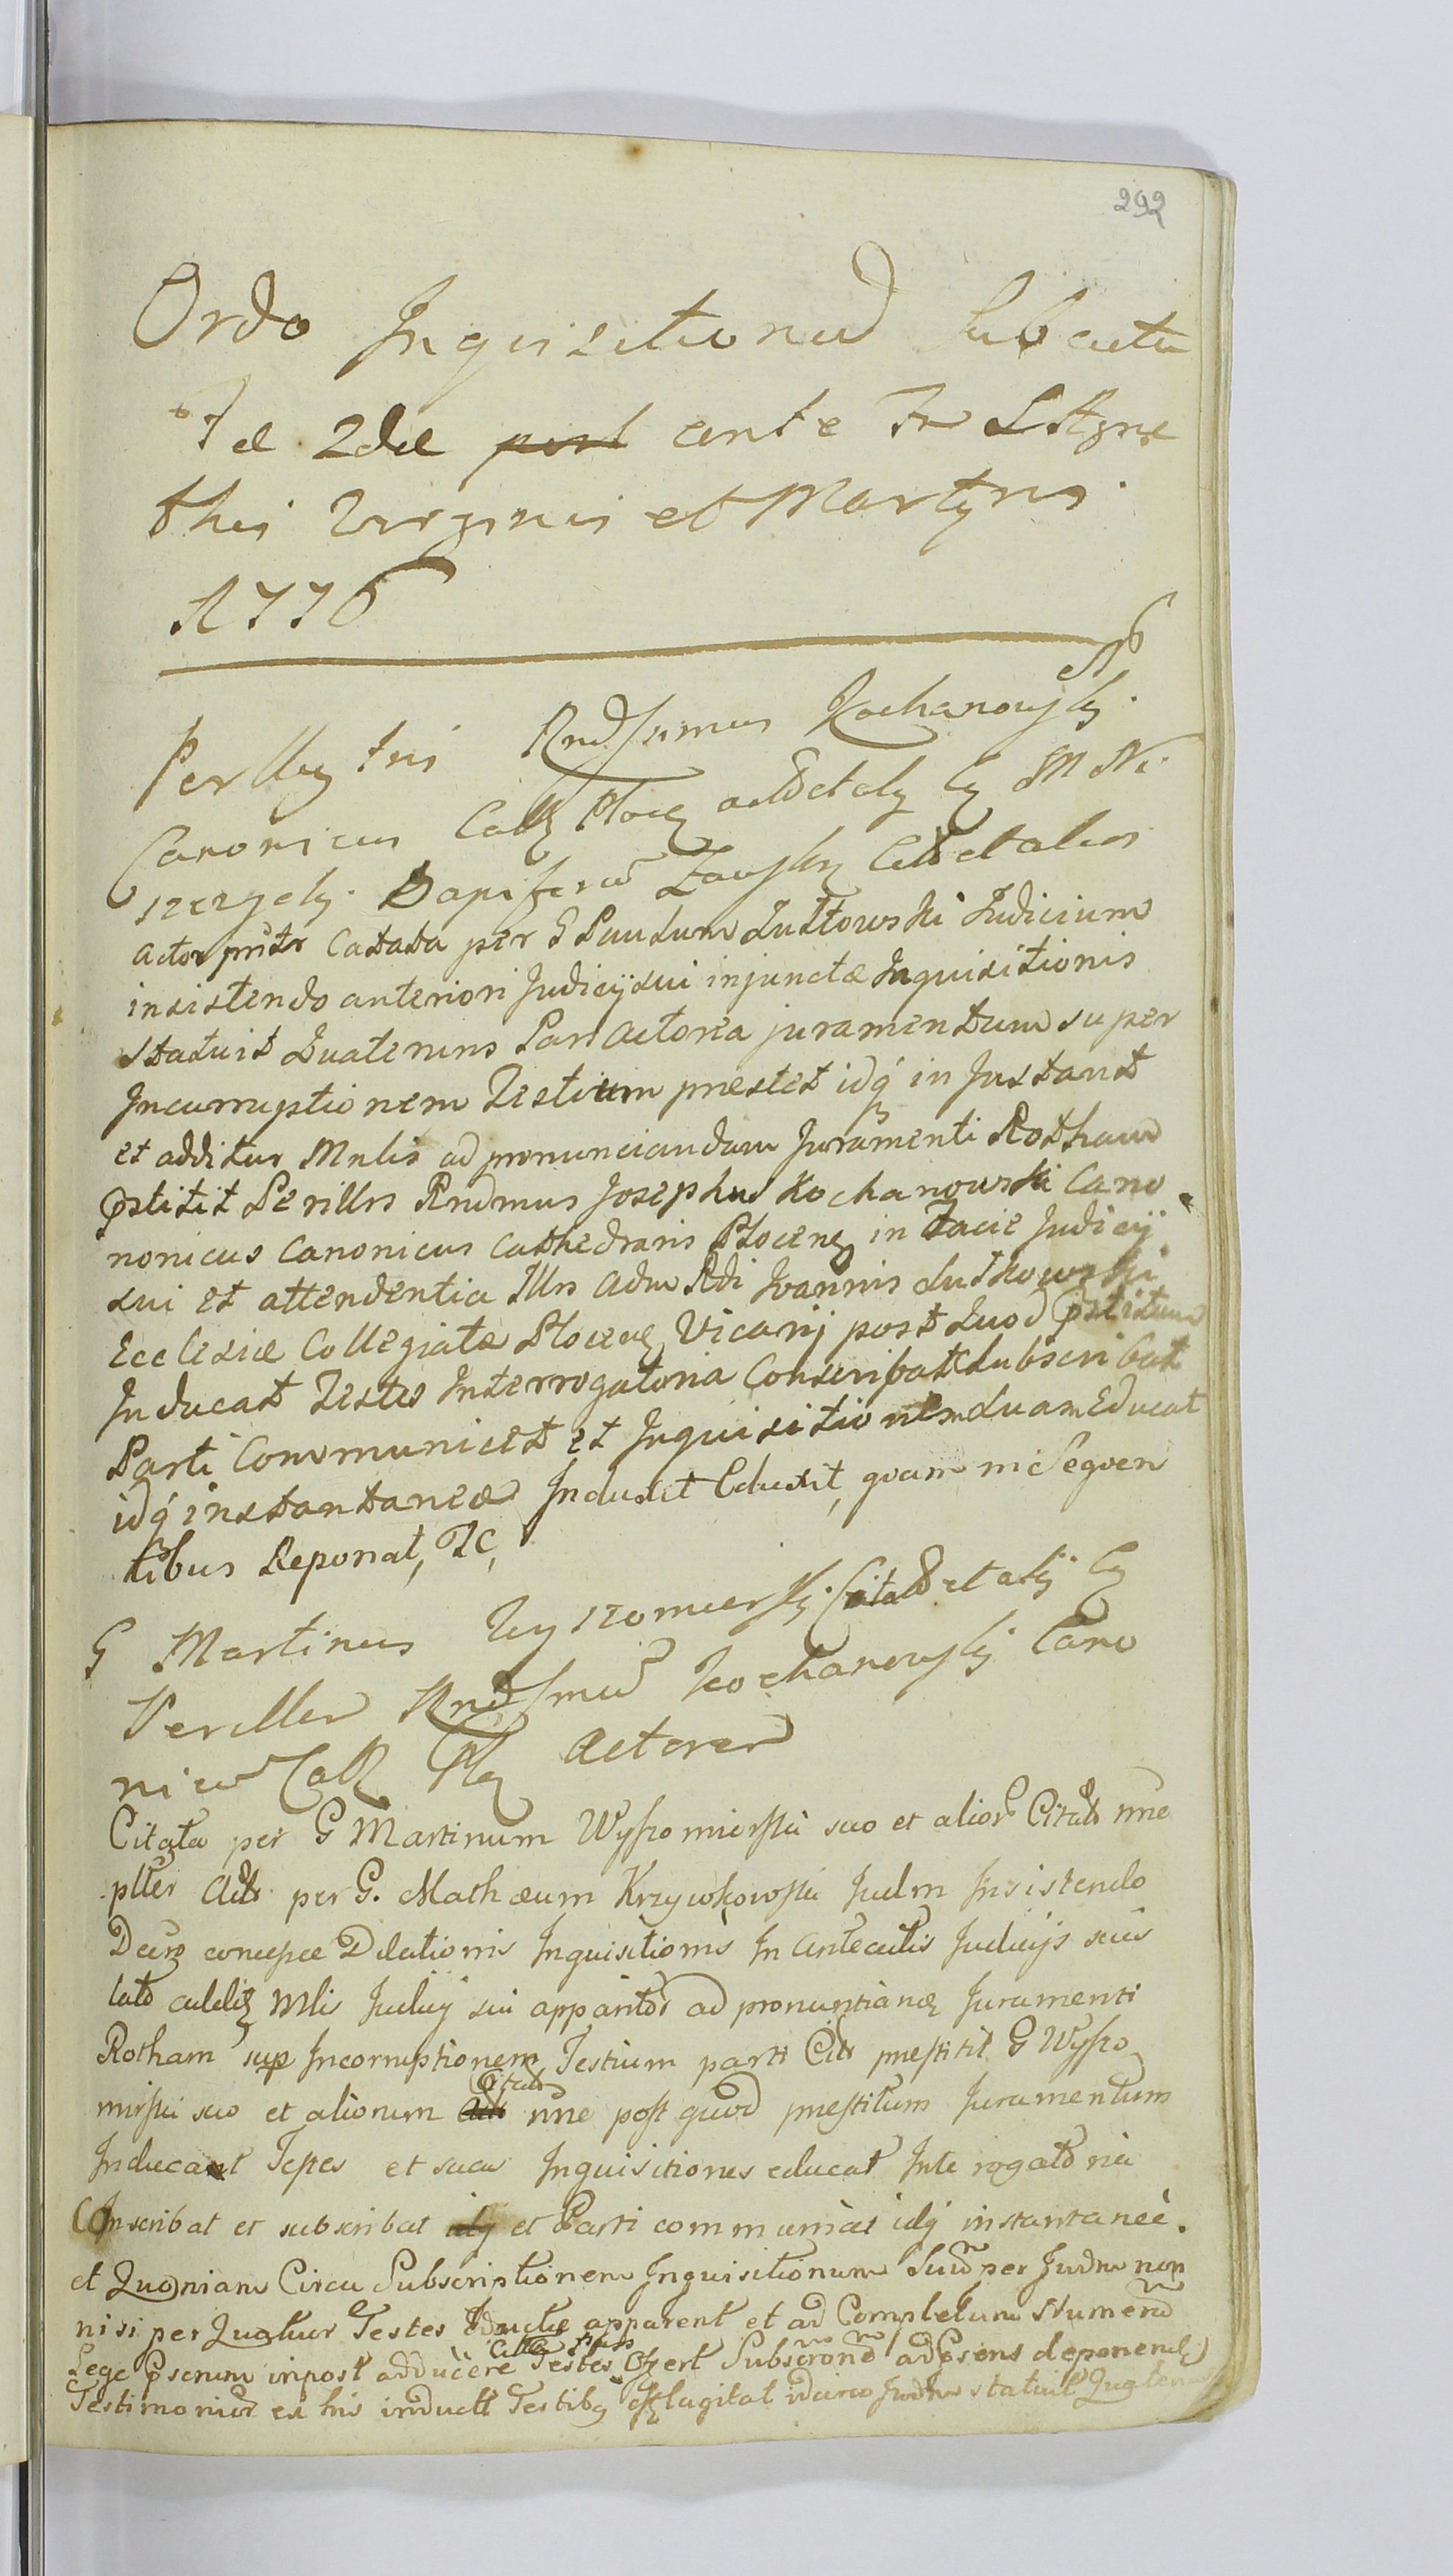 292
Ordo Inquisitionũ Sub actu
Fel 2dæ post ante Fm S Agne
this Virginis et Martyris
1776
Perillus tris Rndssimus Kochanowski
Canonicus Catt Ploc actor et alij Cq M Ni
szczycki Dapiferũ Zawskr Citt et alios
Actor pntr Catata per G Paulum Lutkowski Judicium
insistendo anteriori Judicij sui injunctæ Inquisitionis
Statuit Quatenus Pars Actorea juramentum super
Incorruptionem Testium prestet idq́ in Instant
et additur Mnlis ad pronunciandam Juramenti Rotham
Pstitit Perillrs Rndmus Josephus Kochanowski Cano
nonicus Canonicus Cathedraris Plocens in Facie Judicij
sui et attendentia Illrs Adm Rdi Joannis Lutkowski
Ecclesiæ Collegiatæ Plocens Vicarij post Quod Pstitum
Inducat Testes Interrogatoria Conscribat Subscribat
Parti Communicet et Inquisitionem Suam Educat
idq́ instantanee Induxit Eduxit, quam in Sequen
tibus Reponat, Tc,
G Martinus Wyszomierski Citat et alij Cq
Perillem Rndssmũ Kochanowski Cano
nicũ Catt Plo Actorem
Citata per G Martinum Wyszomierski suo et aliorũ Citat nne
plter Act per G. Mathæum Krzywkowski Judm Insistendo
Decrs concessæ Dilationis Inquisitionis In Anteactis Judicijs suis
lato addito Mli Judij sui apparitor ad pronuntiand Juramenti
Rotham sup Incorruptionem Testium parti Cit prestitit G Wyszo
mirski suo et aliorum Act Citat nne post quod prestitum Juramentum
Inducant Testes et suas Inquisitiones educat Interrogatoria
Conscribat et subscribat idq et Parti communicat idq instantaneè.
et Quoniam Circa Subscriptionem Inquisitionum Suar per Judm non
nisi per Quatuor Testes Educte apparent et ad Completum Numerũ
Lege Pscrium inpost adducere Citta Pars Testes Offert Subscrone ad Psens deponend
Testimoniũ ex his inductt Testibq efflagitat idcirco Judm statuit Quaten